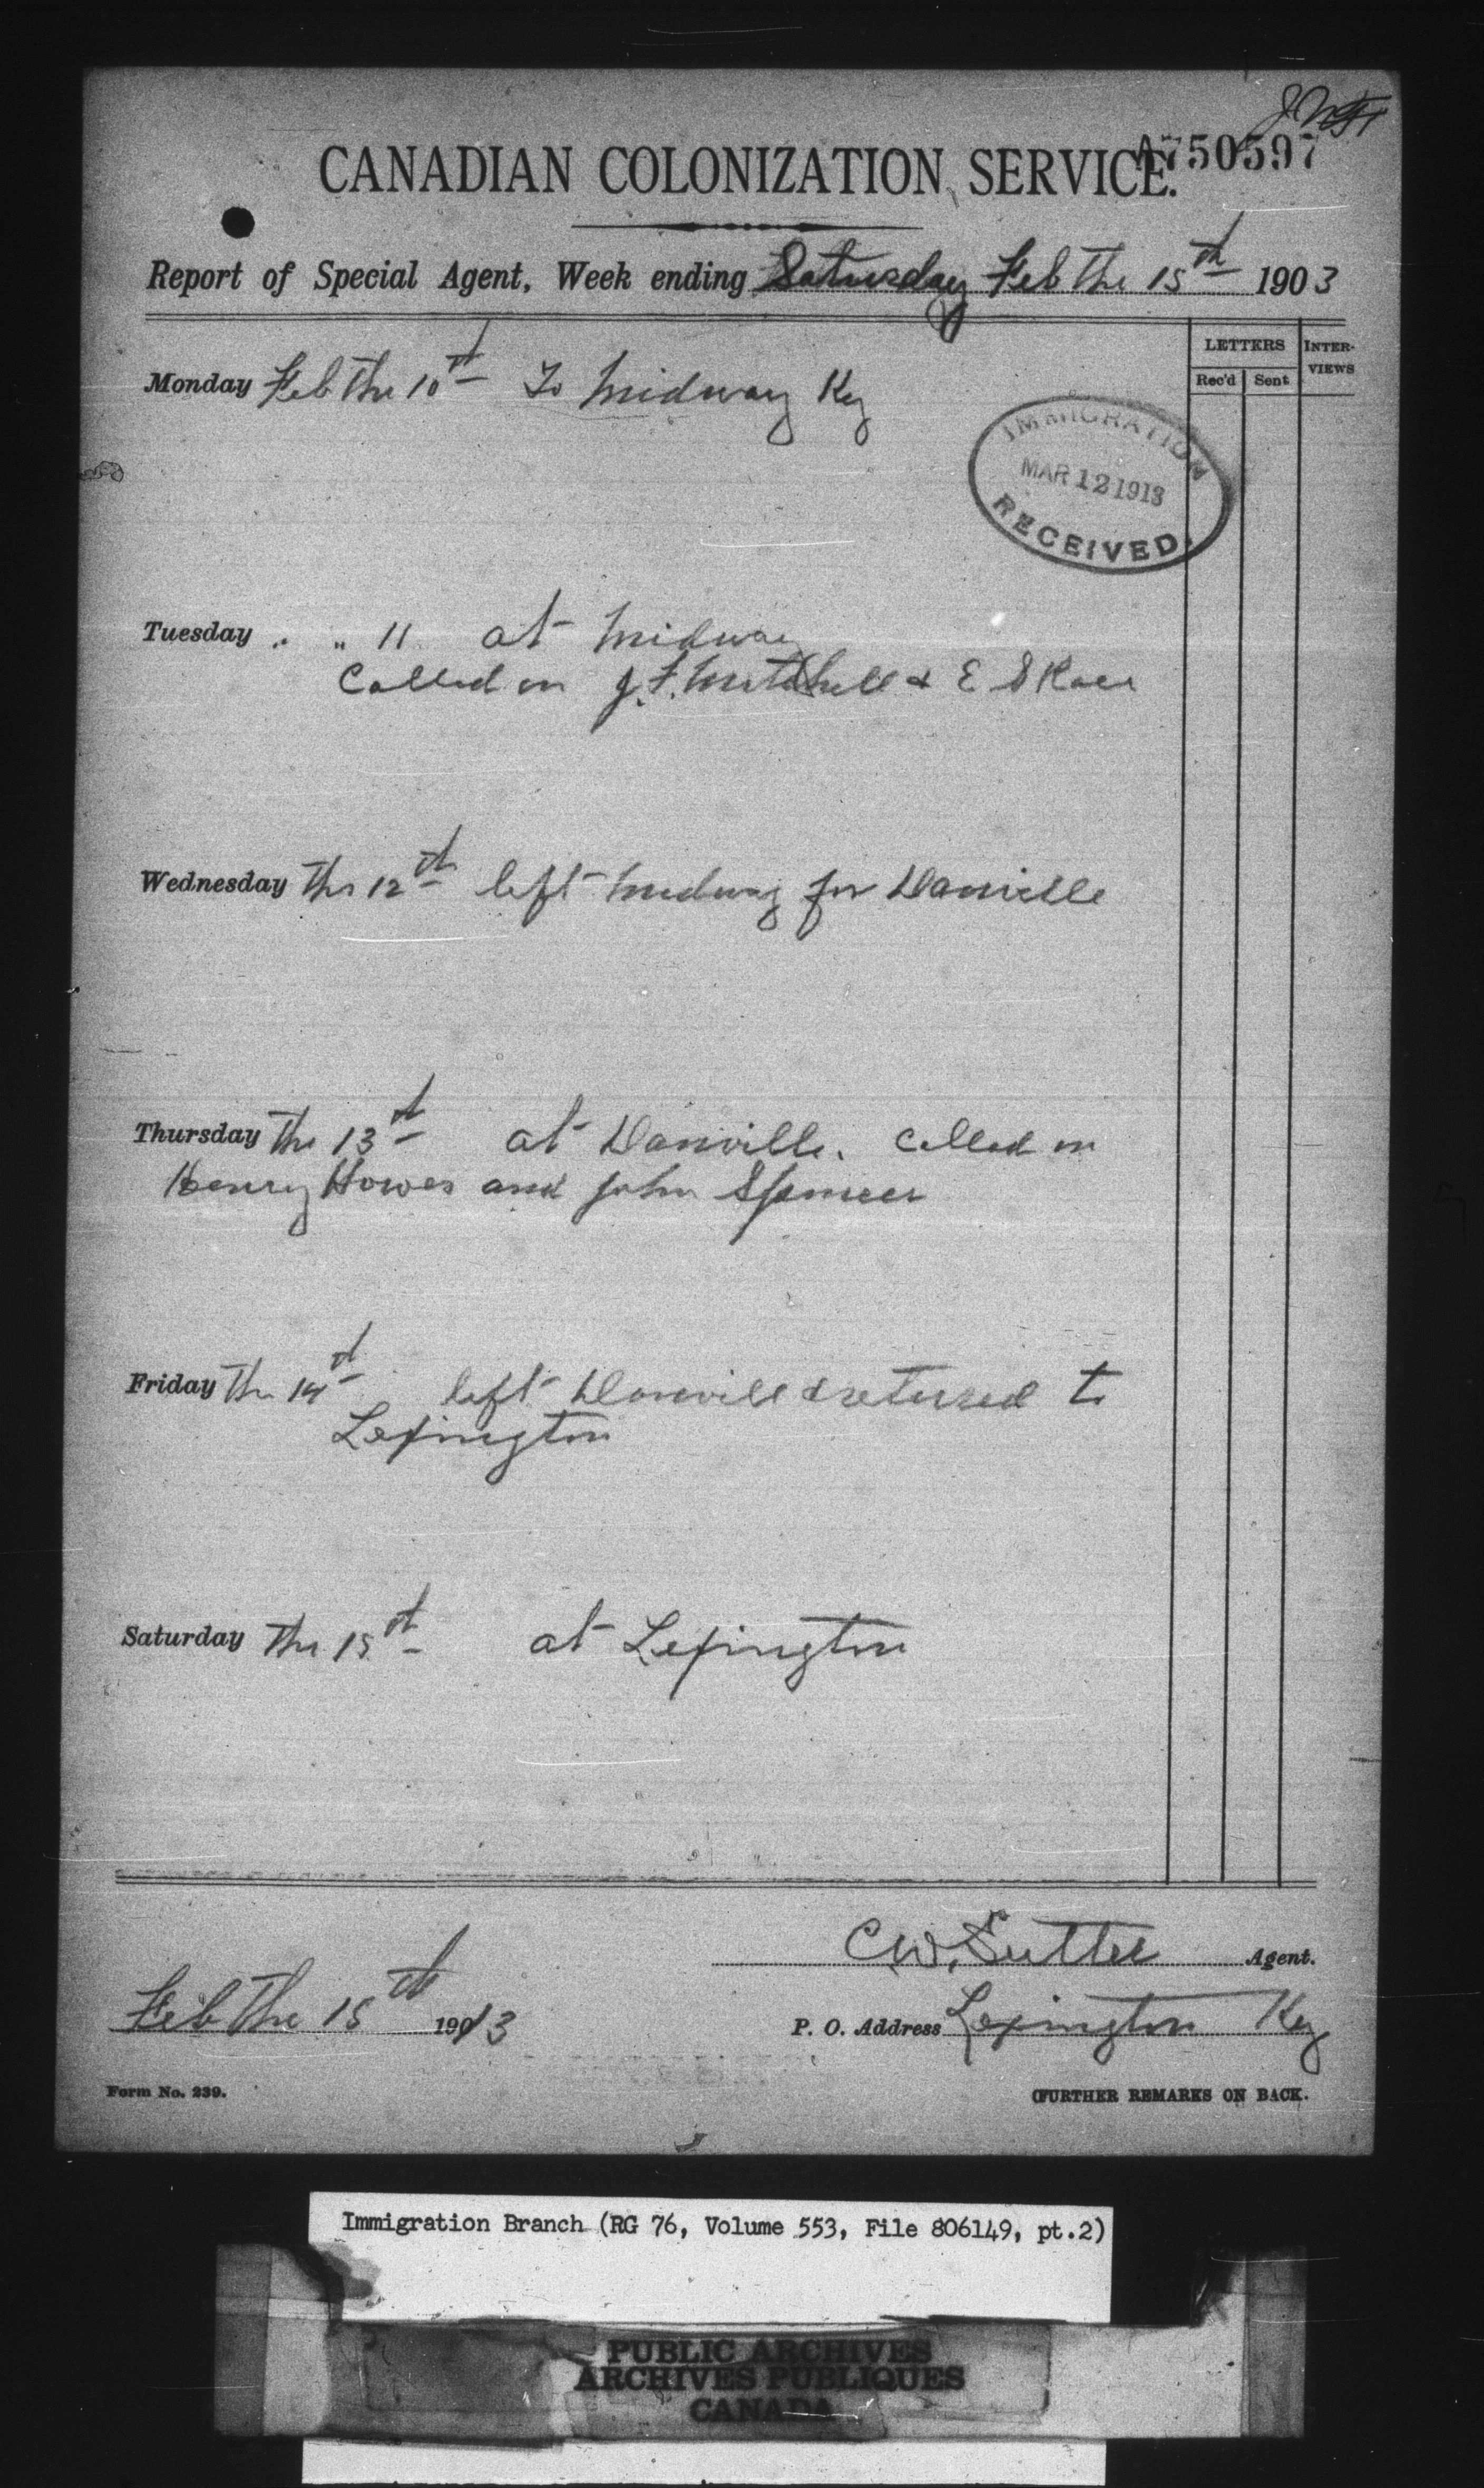 A750597
CANADIAN COLONIZATION SERVICE.
Report of Special Agent, Week ending Saturday Feb the 15th 1903
LETTERS
INTER-
VIEWS
Rec'd
Sent
Monday Feb the 10th To Midway Ky
IMMIGRATION
MAR 12 1913
RECEIVED.
Tuesday " " 11 at Midway
Called on J. F. Mitchell & E S
Wednesday the 12th left Midway for Danville
Thursday the 13th at Danville. Called on
Henry Howes and John Spencer
Friday the 14th left Danvill & returned to
Lexington
Saturday the 15th at Lexington
C.W. Agent.
Feb the 15th 1913
P. O. Address Lexington Ky
Form No. 239.
(FURTHER REMARKS ON BACK.
Immigration Branch (RG 76, Volume 553, File 806149, pt.2)
PUBLIC ARCHIVES
ARCHIVES PUBLIQUES
CANADA